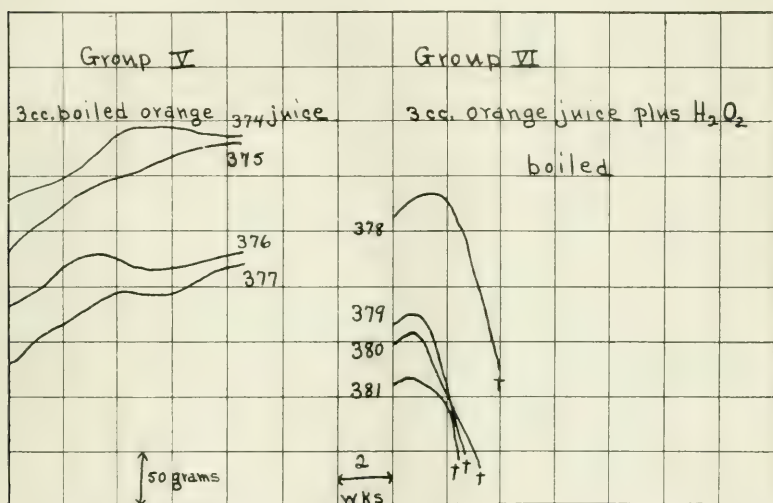 Group V
3cc. boiled orange juice
374
375
376
377
50 grams
Group VI
3cc. orange juice plus H₂O₂
boiled
378
379
380
381
†
†
†
†
2
wks